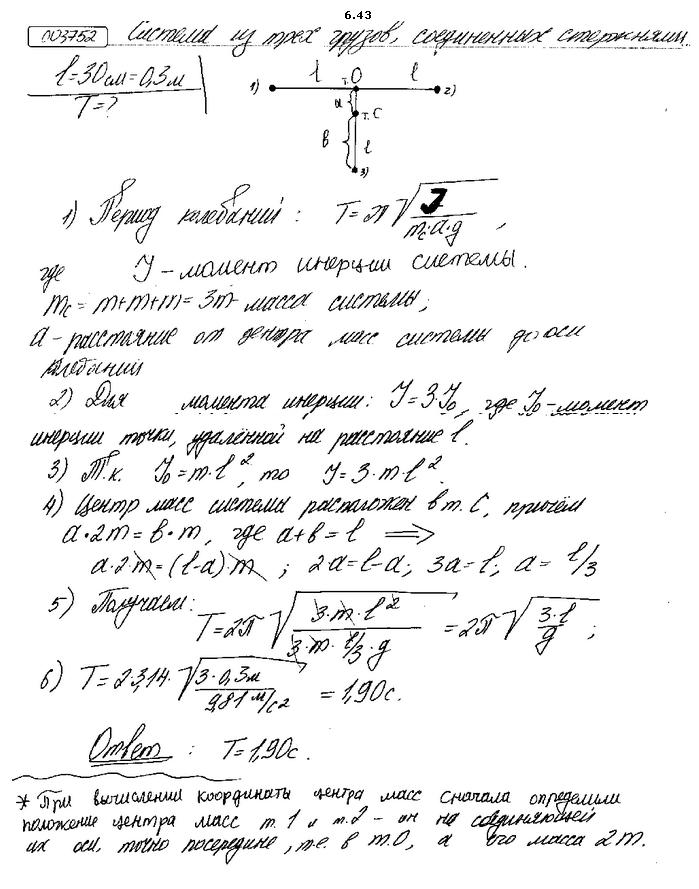 6.43
003752 Система из трех грузов, соединенных стержнями.
l=30см=0,3м
T=?
1) l т.O l 2)
a
т.C
b
l
3)
1) Период колебаний: T=2π√(J/(mc·a·g)),
где J – момент инерции системы.
mc = m+m+m = 3m – масса системы;
a – расстояние от центра масс системы до оси
колебаний
2) Для момента инерции: J=3·J0, где J0 – момент
инерции точки, удалённой на расстояние l.
3) Т.к. J0=m·l², то J=3·m·l².
4) Центр масс системы расположен в т. C, причём
a·2m=b·m, где a+b=l ⟹
a·2·m=(l-a)·m ; 2a=l-a; 3a=l; a= l/3
5) Получаем: T=2π√(3·m·l²/(3·m·l/3·g)) =2π√(3·l/g) ;
6) T=2·3,14·√(3·0,3м/(9,81 м/с²)) =1,90с.
Ответ : T=1,90с.
* При вычислении координаты центра масс сначала определили
положение центра масс т.1 и т.2 – он на соединяющей
их оси, точно посередине, т.е. в т.О, а его масса 2m.